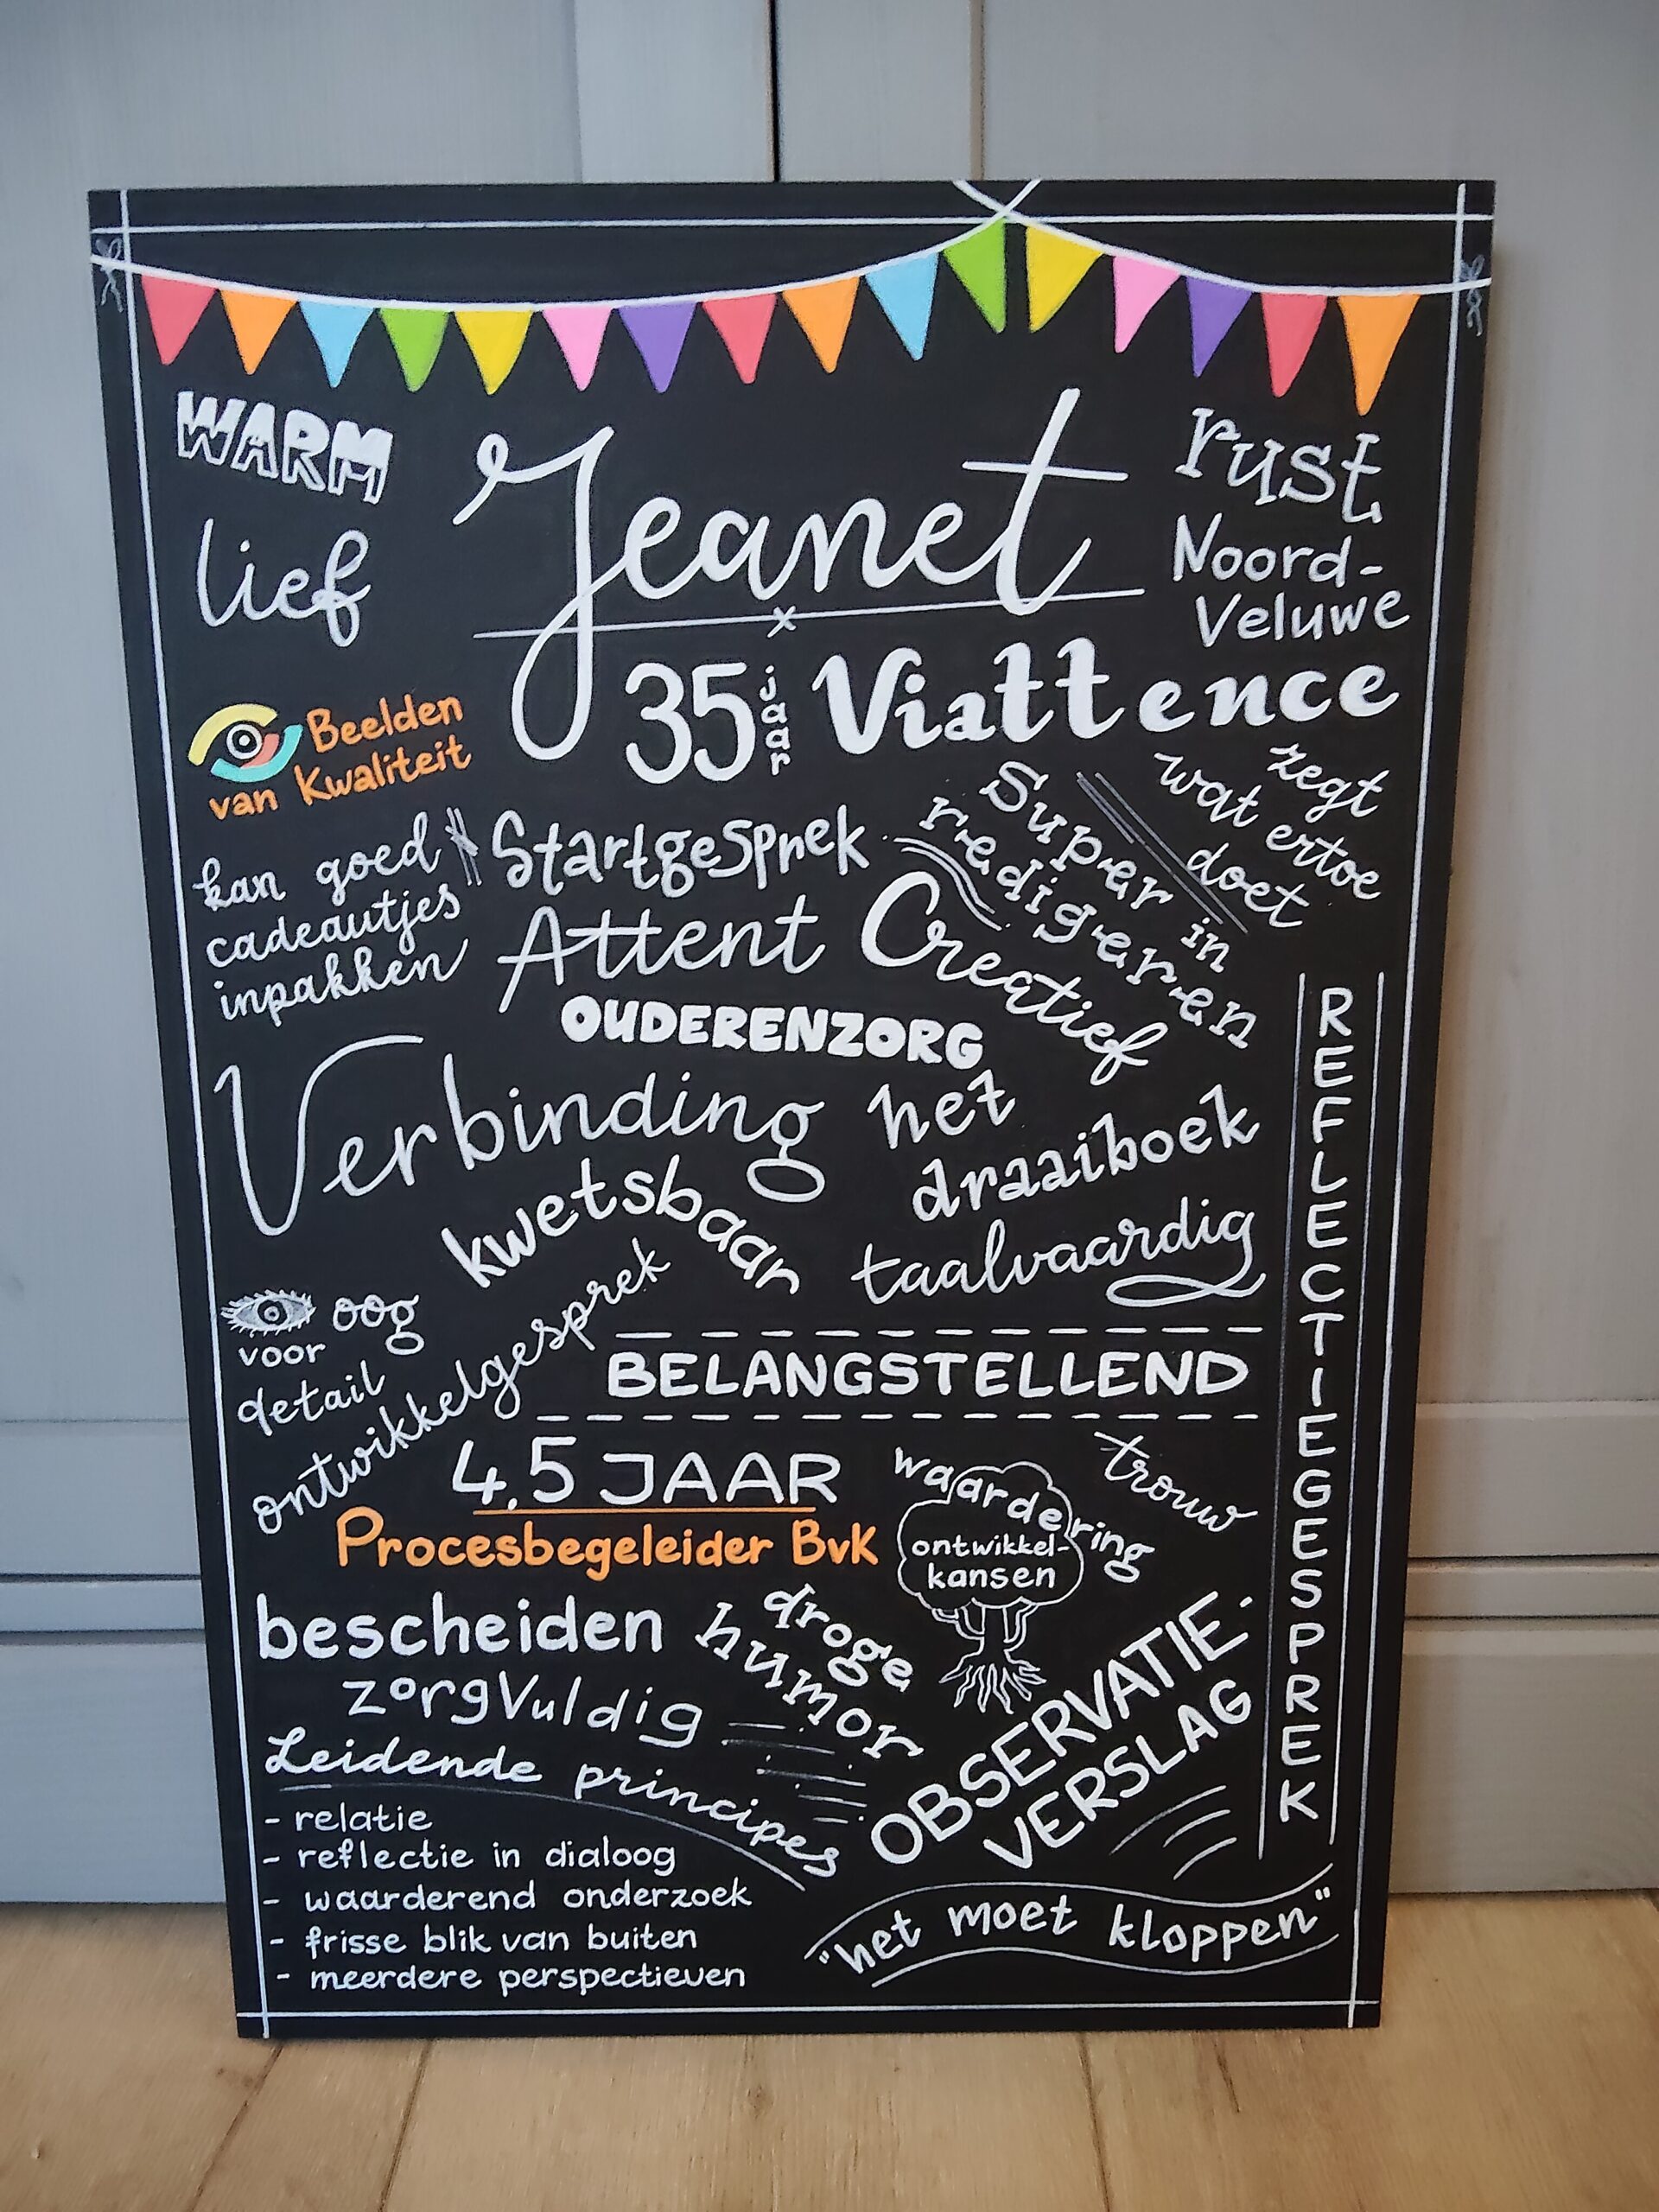 WARM
lief
Jeanet
rust
Noord-
Veluwe
35 jaar Viattence
Beelden
van Kwaliteit
zegt
wat ertoe
doet
Super in
redigeren
kan goed
cadeautjes
inpakken
Startgesprek
Attent
Creatief
OUDERENZORG
Verbinding
het
draaiboek
kwetsbaar
taalvaardig
REFLECTIEGESPREK
oog
voor
detail
ontwikkelgesprek
BELANGSTELLEND
4,5 JAAR
Procesbegeleider BvK
waardering
ontwikkel-
kansen
trouw
bescheiden
droge
humor
zorgVuldig
OBSERVATIE-
VERSLAG
Leidende principes
- relatie
- reflectie in dialoog
- waarderend onderzoek
- frisse blik van buiten
- meerdere perspectieven
"het moet kloppen"